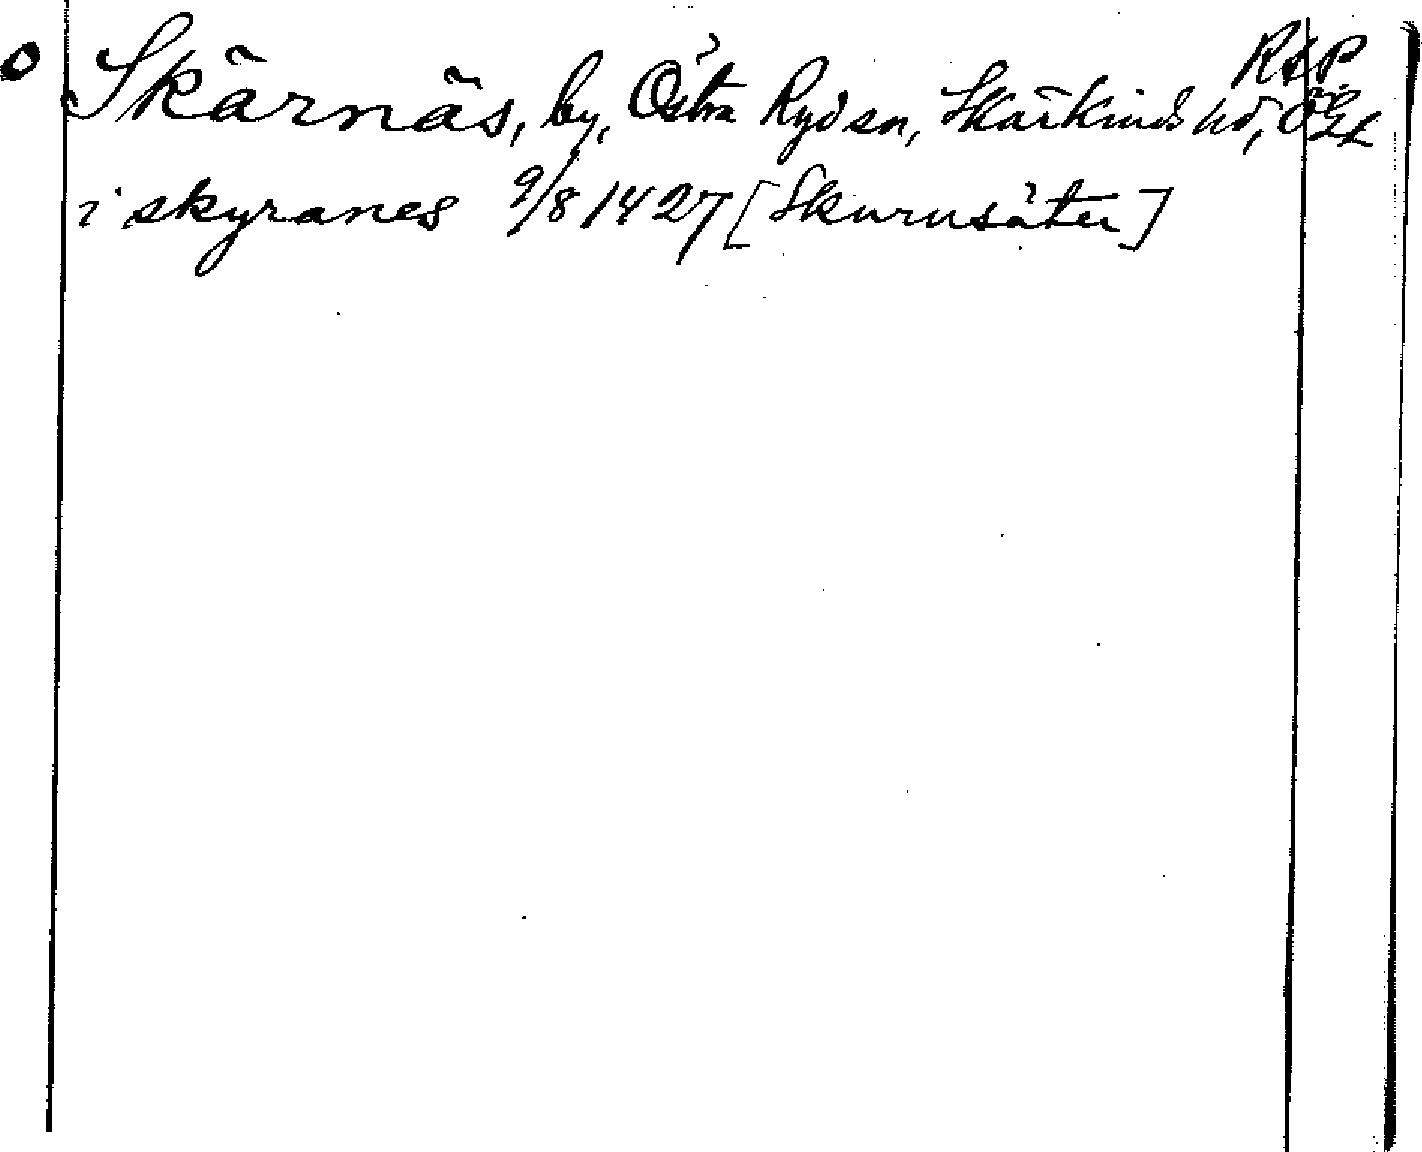 RAP
Skärnäs, by, Östra Ryd sn, Skärkinds hd, Ögl
i skyranes 9/8 1427 [Skurusäter]